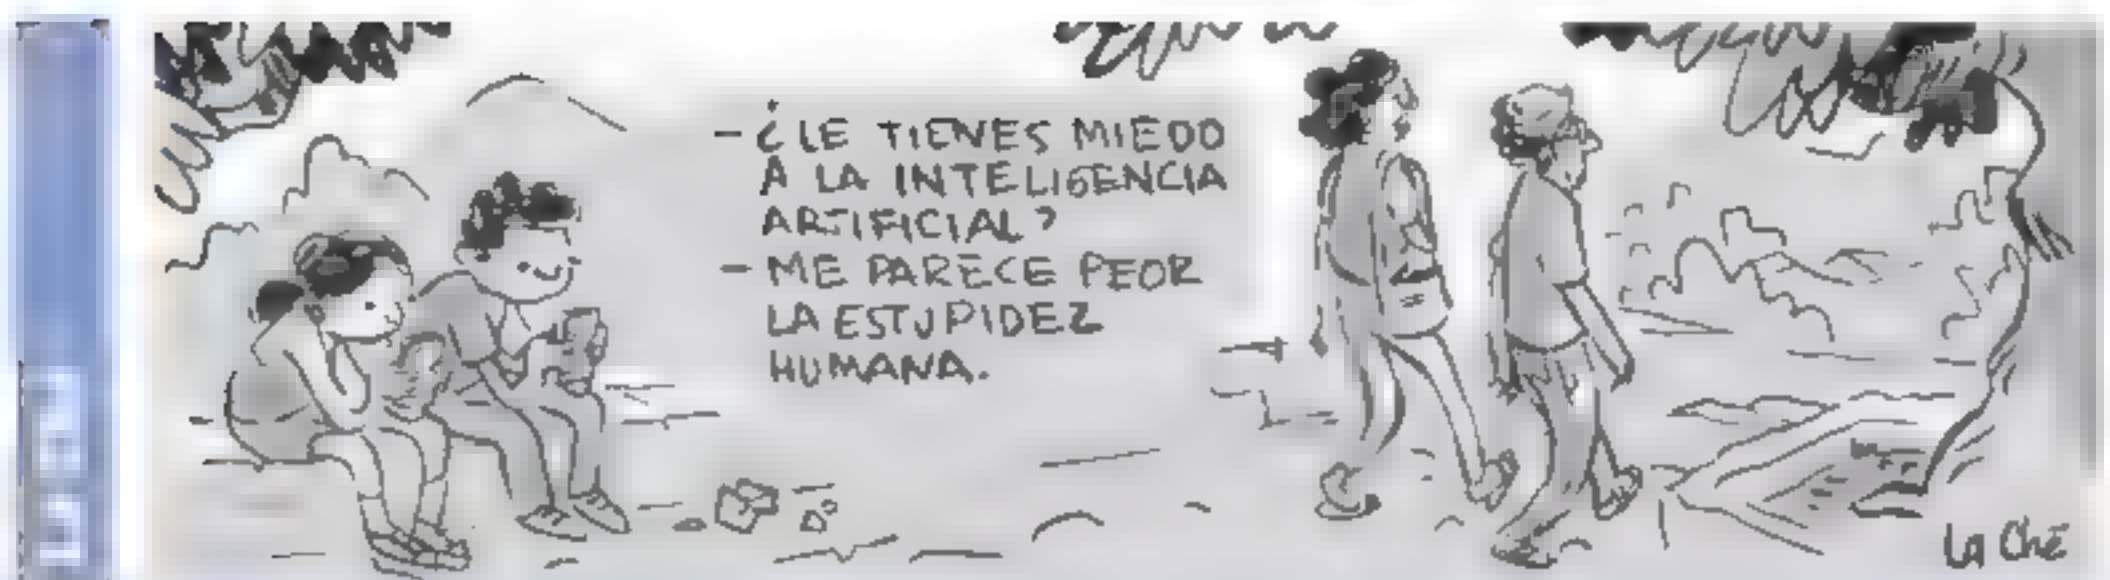 - ¿LE TIENES MIEDO
A LA INTELIGENCIA
ARTIFICIAL?
- ME PARECE PEOR
LA ESTUPIDEZ
HUMANA.
La Ché